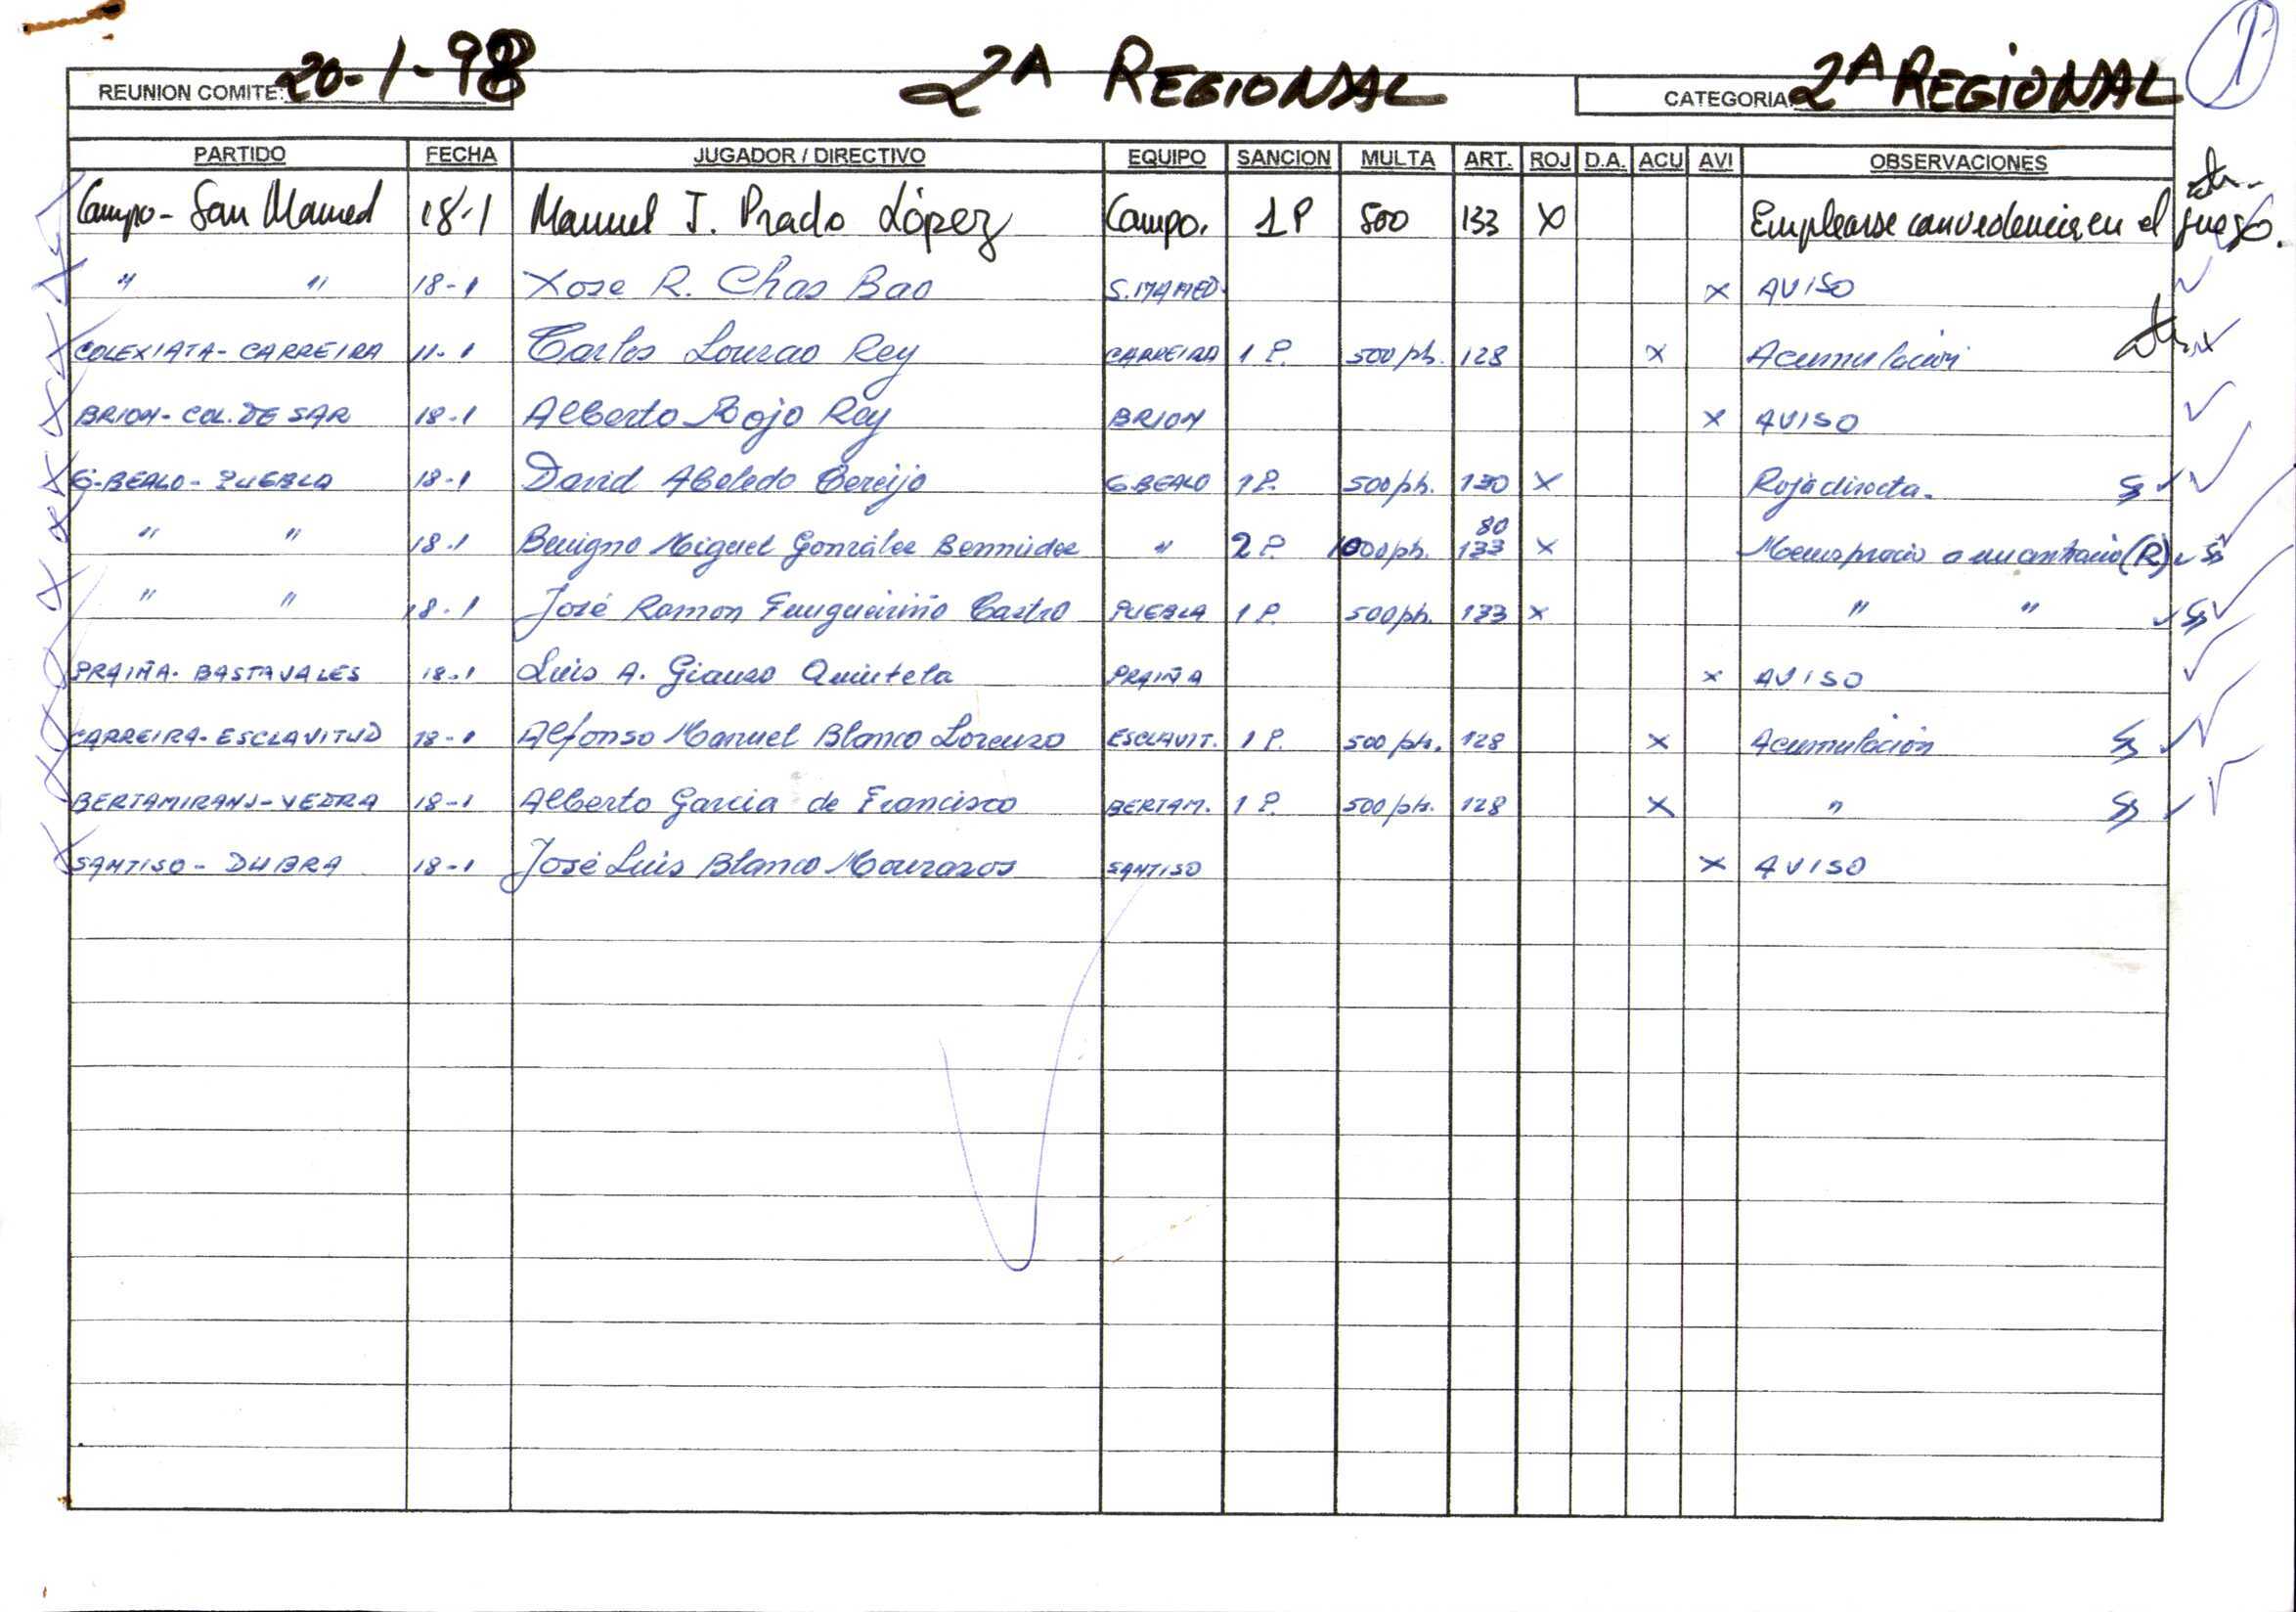 REUNION COMITE: 20-1-98 2ª REGIONAL CATEGORIA 2ª REGIONAL
PARTIDO FECHA JUGADOR / DIRECTIVO EQUIPO SANCION MULTA ART. ROJ D.A. ACU AVI OBSERVACIONES
Campo - San Mamed 18-1 Manuel J. Prado López Campo. 1 P 500 133 X Emplearse con violencia en el juego.
" " 18-1 Xose R. Chas Bao S.MAMED. X AVISO
COLEXIATA - CARREIRA 11-1 Carlos Lourao Rey CARREIRA 1 P. 500 pts. 128 X Acumulación
BRION - COL. DE SAR 18-1 Alberto Rojo Rey BRION X AVISO
G-BEALO - PUEBLA 18-1 David Abeledo Cereijo G.BEALO 1 P. 500 pts. 130 X Roja directa.
" " 18-1 Benigno Miguel González Bermúdez " 2 P. 1000 pts. 80 133 X Menosprecio a un contrario (R)
" " 18-1 José Ramon Fungueiriño Castro PUEBLA 1 P. 500 pts. 133 X " "
PRAIÑA - BASTAVALES 18-1 Luis A. Gianzo Quintela PRAIÑA X AVISO
CARREIRA - ESCLAVITUD 18-1 Alfonso Manuel Blanco Lorenzo ESCLAVIT. 1 P. 500 pts. 128 X Acumulación
BERTAMIRANS - VEDRA 18-1 Alberto Garcia de Francisco BERTAM. 1 P. 500 pts. 128 X "
SANTISO - DUBRA 18-1 José Luis Blanco Mourazos SANTISO X AVISO